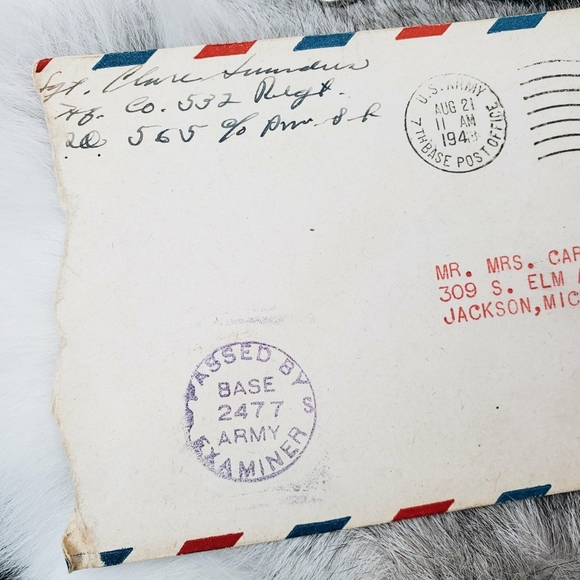 Sgt. Clare Saunders
Co. 532 Regt.
565 c/o
U.S. ARMY
AUG 21
11 AM
194
7TH BASE POST OFFICE
MR. MRS. CAR
309 S. ELM A
JACKSON, MIC
PASSED BY
BASE
2477
ARMY
EXAMINER
S